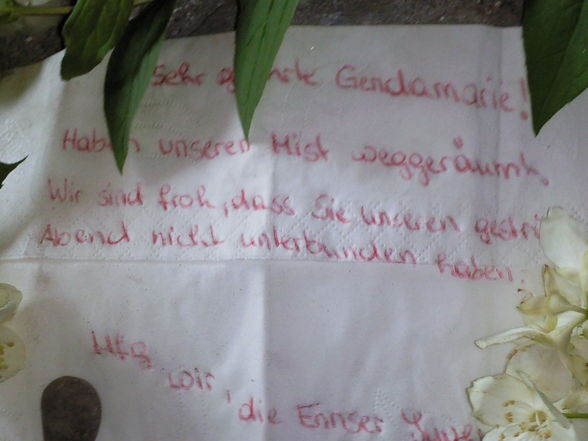 Sehr Gendamarie!
Haben unseren Mist weggeräumt.
Wir sind froh, dass Sie unseren
Abend nicht unterbunden haben.
Mfg
wir,
die Ennser